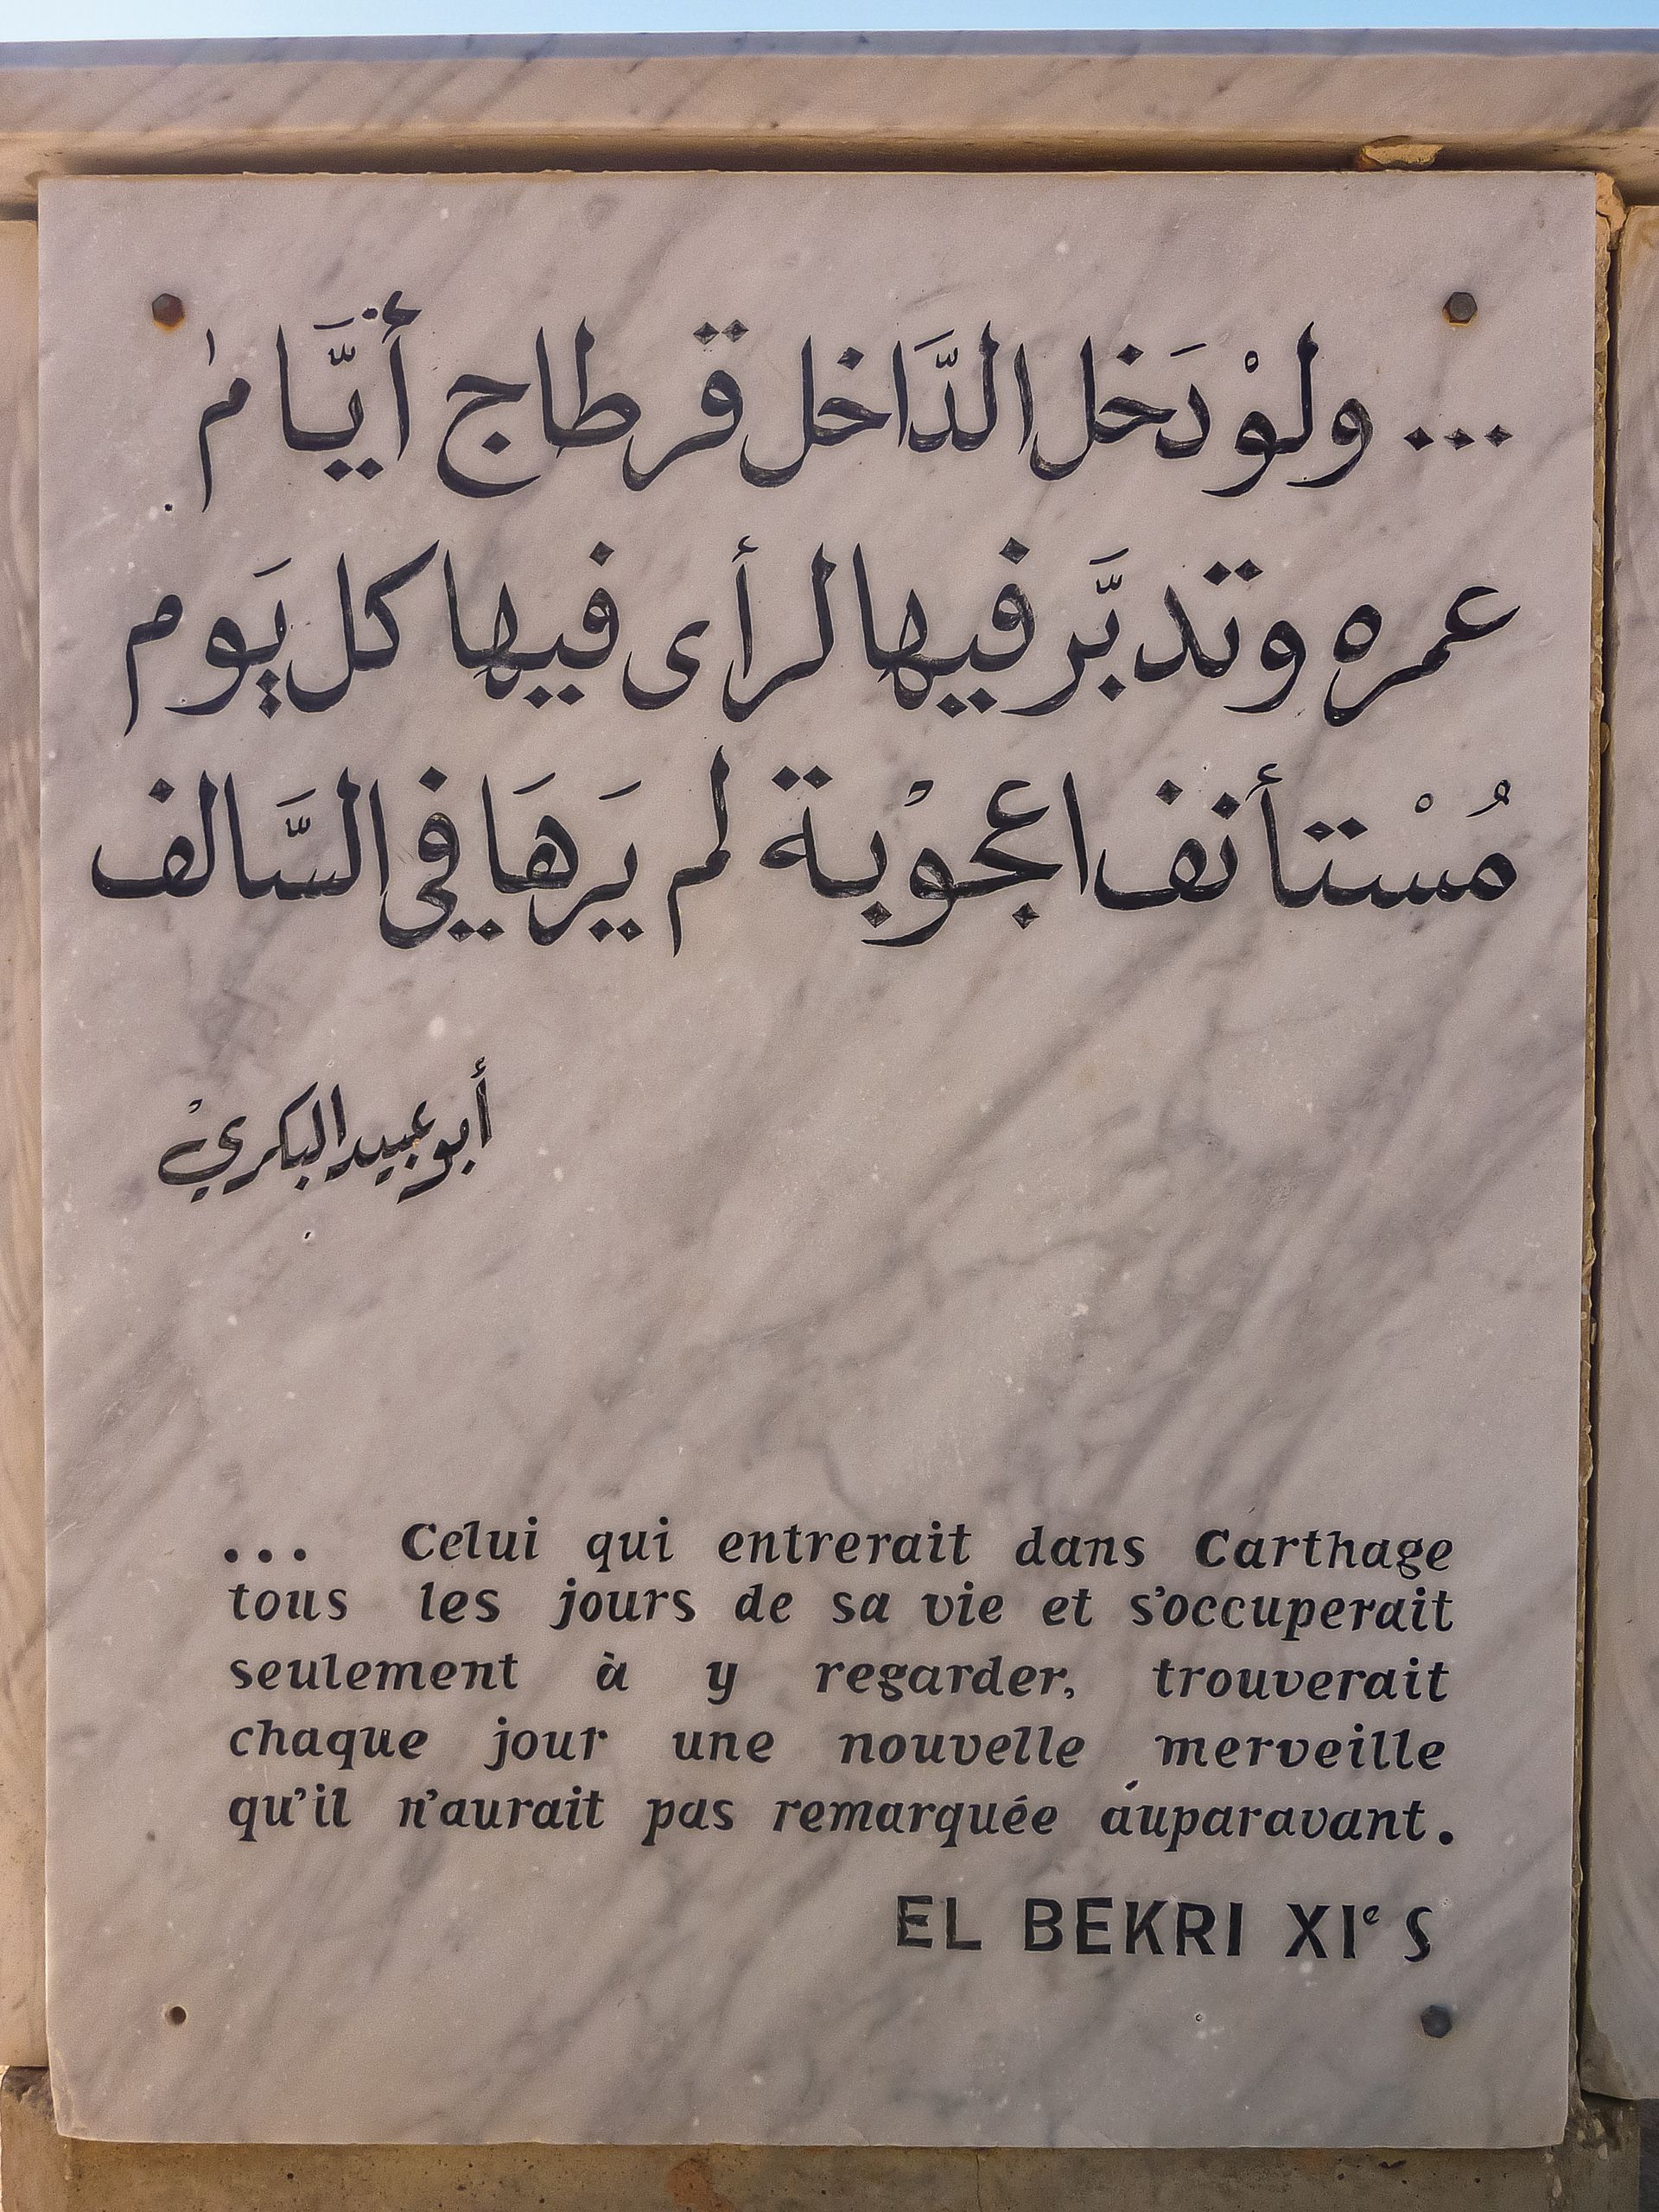 ... ولوْ دَخل الدَّاخل قرطاج أيَّام
عمره وتدبَّر فيها لرأى فيها كل يَوم
مُسْتأنف اعجوْبة لم يَرهَا في السَّالف
أبو عبيد البكريْ
... Celui qui entrerait dans Carthage
tous les jours de sa vie et s'occuperait
seulement à y regarder, trouverait
chaque jour une nouvelle merveille
qu'il n'aurait pas remarquée auparavant.
EL BEKRI XIe S